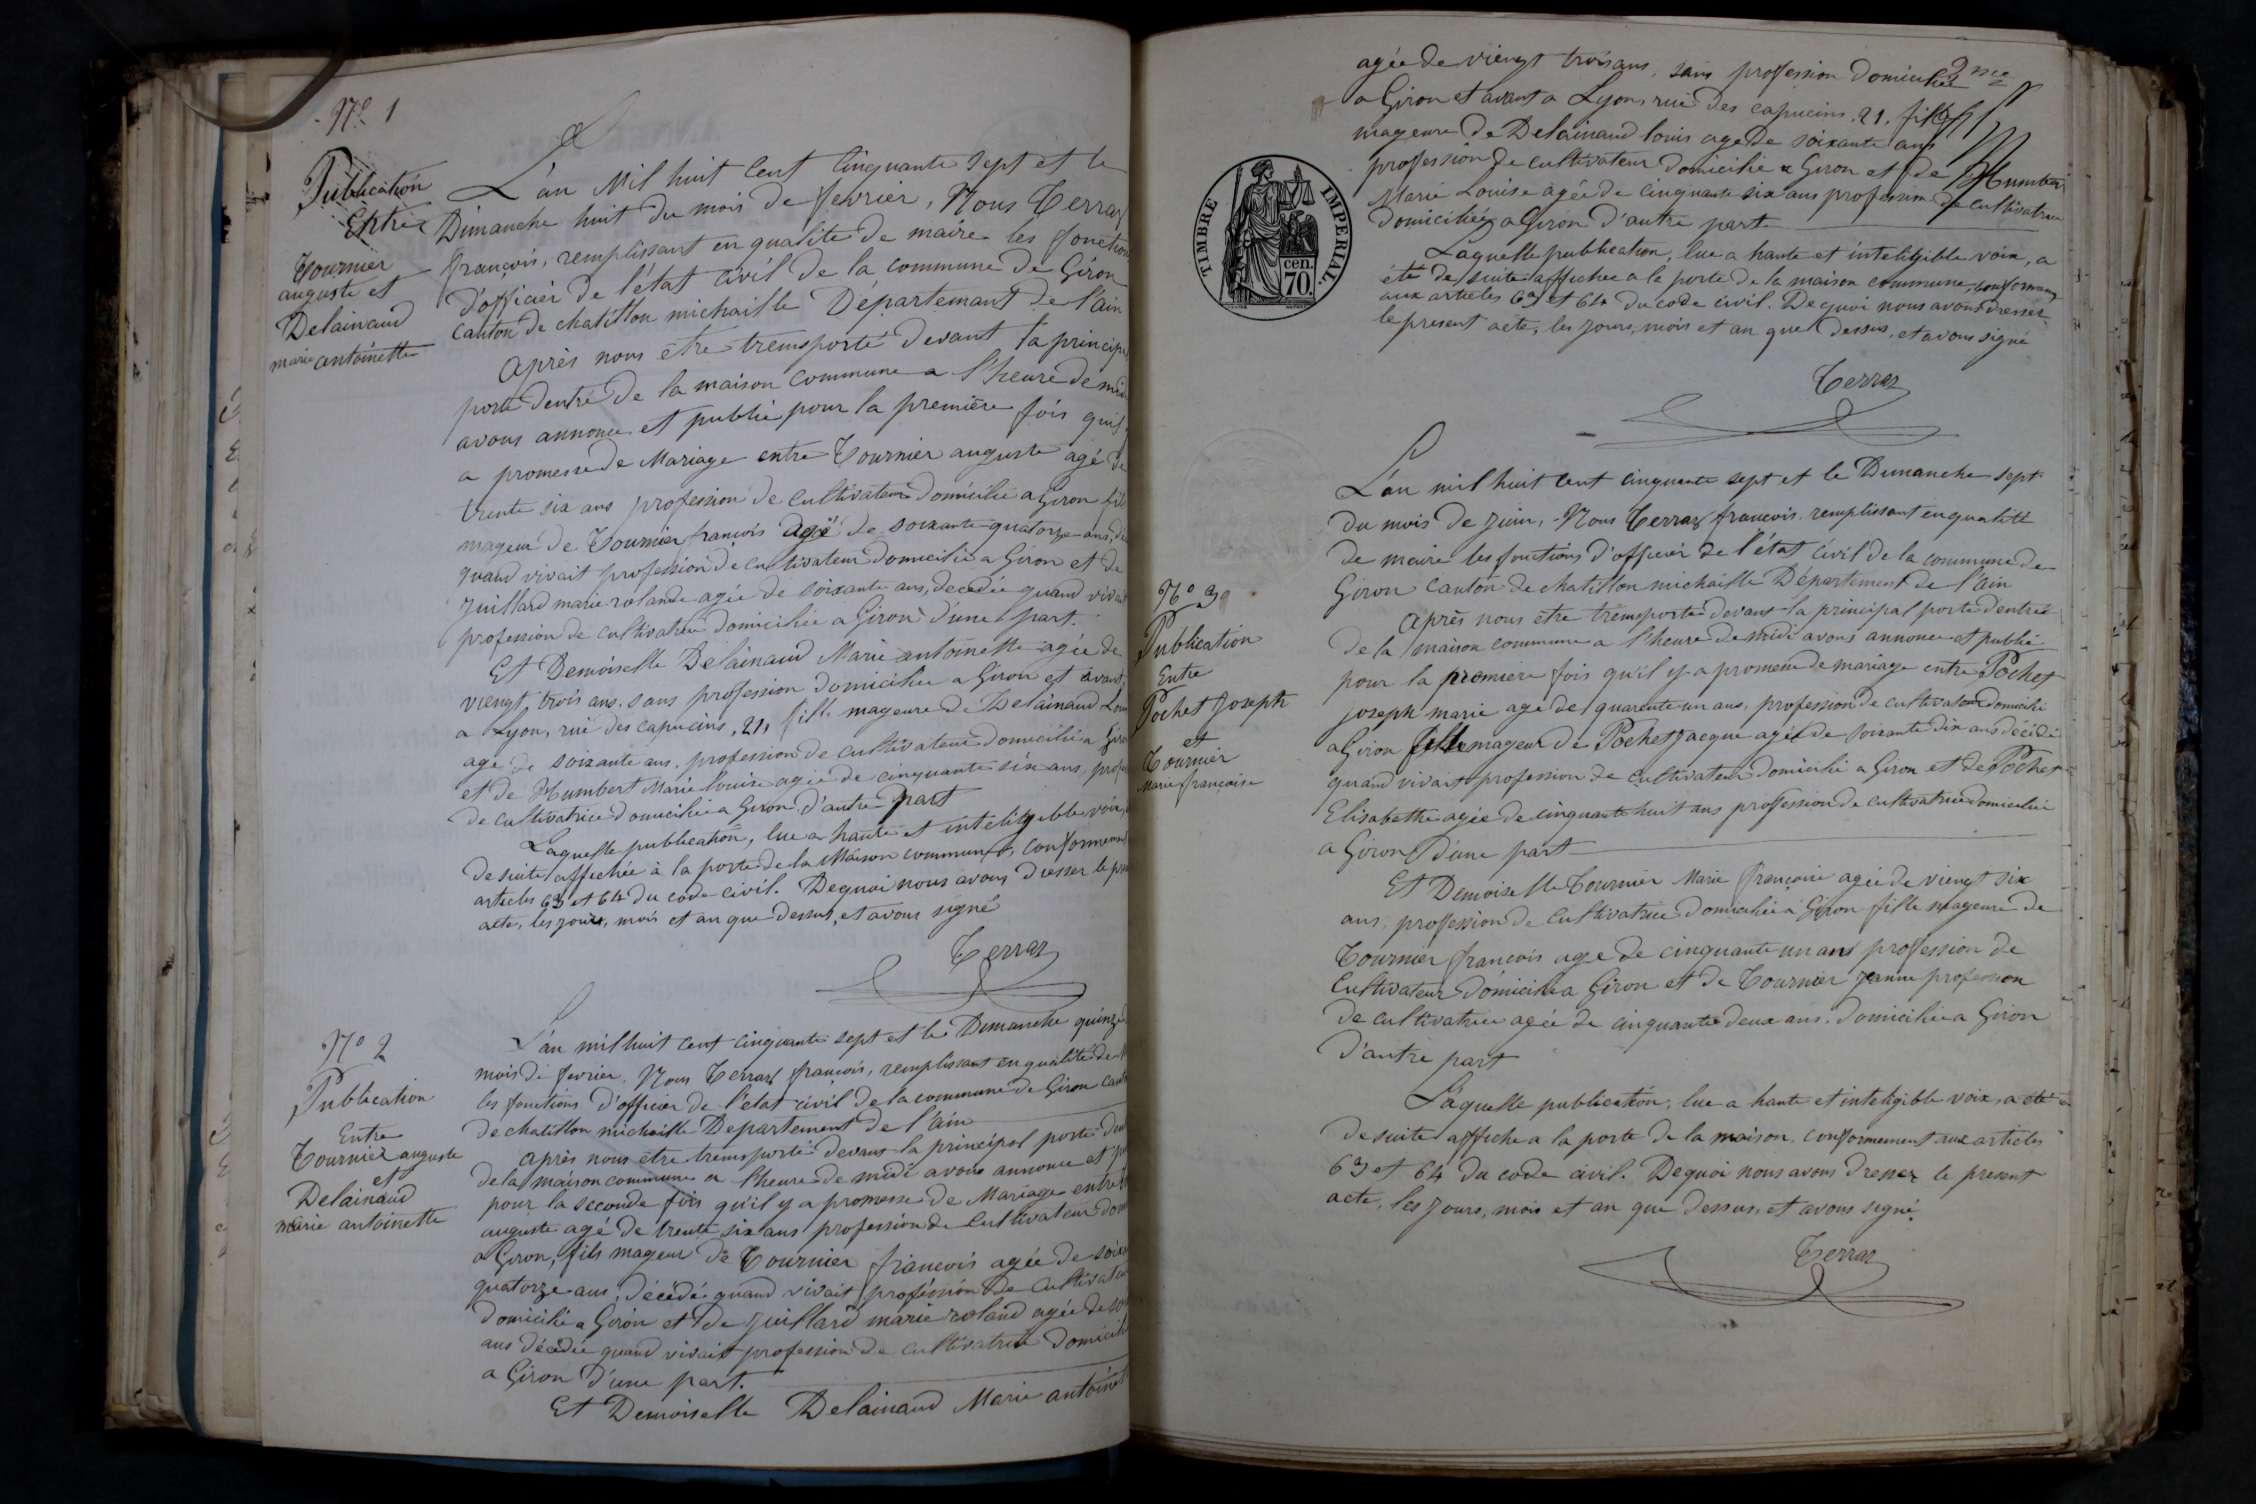 Nº 1
Publication
Entre
Tournier
auguste et
Delainaud
marie antoinette
L'an Mil huit Cent Cinquante Sept et le
Dimanche huit du mois de fevrier, Nous Terraz
françois, remplissant en qualité de maire les fonction
d'officier de l'état civil de la commune de Giron
Canton de chatillon michaille Département de l'ain
Après nous etre tremsporté devant la princip
porte dentré de la maison Commune a l'heure de midi
avons annoncé et publié pour la première fois quil
a promesse de Mariage entre Tournier auguste agé de
trente six ans profession de cultivateur domicilié a Giron fils
mageur de Tournier françois agé de soixante quatorze ans, dé
quand vivait profession de cultivateur domicilié a Giron et de
Juillard marie rolande agée de soixante ans, decedée quand vivait
profession de cultivatrice domiciliée a Giron d'une part.
Et Demoiselle Delainaud Marie antoinette agée de
viengt trois ans, sans profession domiciliée a Giron et avant
a Lyon, rue des capucins, 21, fille mageure de Delainaud Louis
agé de soixante ans, profession de cultivateur domicilié a Giron
et de Humbert Marie louise agée de cinquante six ans, profes
de cultivatrice domiciliée a Giron d'autre part
Laquelle publication, lue a haute et inteligible voix,
de suite affichée à la porte de la Maison commune, conformement
articles 63 et 64 du code civil. Dequoi nous avons dresser le pres
acte, les jours, mois et an que dessus, et avons signé
Terraz
Nº 2
Publication
Entre
Tournier auguste
et
Delainaud
marie antoinette
L'an mil huit cent cinquante sept et le Dimanche quinze
mois de fevrier, Nous Terraz francois, remplissant en qualité de
les fonctions d'officier de l'etat civil de la commune de Giron canton
de chatillon michaille Departement de l'ain
Après nous etre tremsporté devant la principal porte den
de la maison commune a l'heure de midi avons annoncé et pu
pour la seconde fois qu'il y a promesse de Mariage entre T
auguste agé de trente six ans profession de Cultivateur dom
a Giron, fils mageur de Tournier francois agée de soix
quatorze ans, décédé quand vivait profession de cultivateur
domicilié a Giron et de Juillard marie roland agée de soi
ans décédée quand vivait profession de cultivatrice domicili
a Giron d'une part.
Et Demoiselle Delainaud Marie antoinet
2me
agée de viengt trois ans, sans profession domiciliée
a Giron et avant a Lyon, rue des capucins, 21, fille
mageure de Delainaud louis agé de soixante ans
profession de cultivateur domicilié a Giron et de Humbert
Marie Louise agée de cinquante six ans profession de cultivatrice
domiciliée a Giron d'autre part
Laquelle publication, lue a haute et inteligible voix, a
été de suite affichée a la porte de la maison commune, conformement
aux articles 63 et 64 du code civil. Dequoi nous avons dresser
le present acte, les jours, mois et an que dessus, et avons signé
TIMBRE IMPERIAL.
cen.
70.
Terraz
Nº 3
Publication
Entre
Pochet Joseph
et
Tournier
Marie françoise
L'an mil huit cent cinquante sept et le Dimanche sept
du mois de juin, Nous Terraz francois remplissant en qualité
de maire les fonctions d'officier de l'état civil de la commune de
Giron Canton de chatillon michaille Département de l'ain
Après nous etre tremsporté devant la principal porte dentrée
de la maison commune a l'heure de midi avons annoncé et publié
pour la premiere fois qu'il y a promesse de mariage entre Pochet
joseph marie agé de quarente un ans, profession de cultivateur domicilié
a Giron fils mageur de Pochet Jacque agé de soixante dix ans décédé
quand vivait profession de cultivateur domicilié a Giron et de Pochet
Elisabethe agée de cinquante huit ans profession de cultivatrice domiciliée
a Giron d'une part
Et Demoiselle Tournier Marie françoise agée de viengt six
ans, profession de Cultivatrice domiciliée à Giron fille mageure de
Tournier francois agé de cinquante un ans profession de
Cultivateur domicilié a Giron et de Tournier Jeanne profession
de cultivatrice agée de cinquante deux ans, domiciliée a Giron
d'autre part
Laquelle publication, lue a haute et inteligible voix, a été
de suite affiche a la porte de la maison, conformement aux articles
63 et 64 du code civil. Dequoi nous avons dresser le present
acte, les jours, mois et an que dessus, et avons signé
Terraz